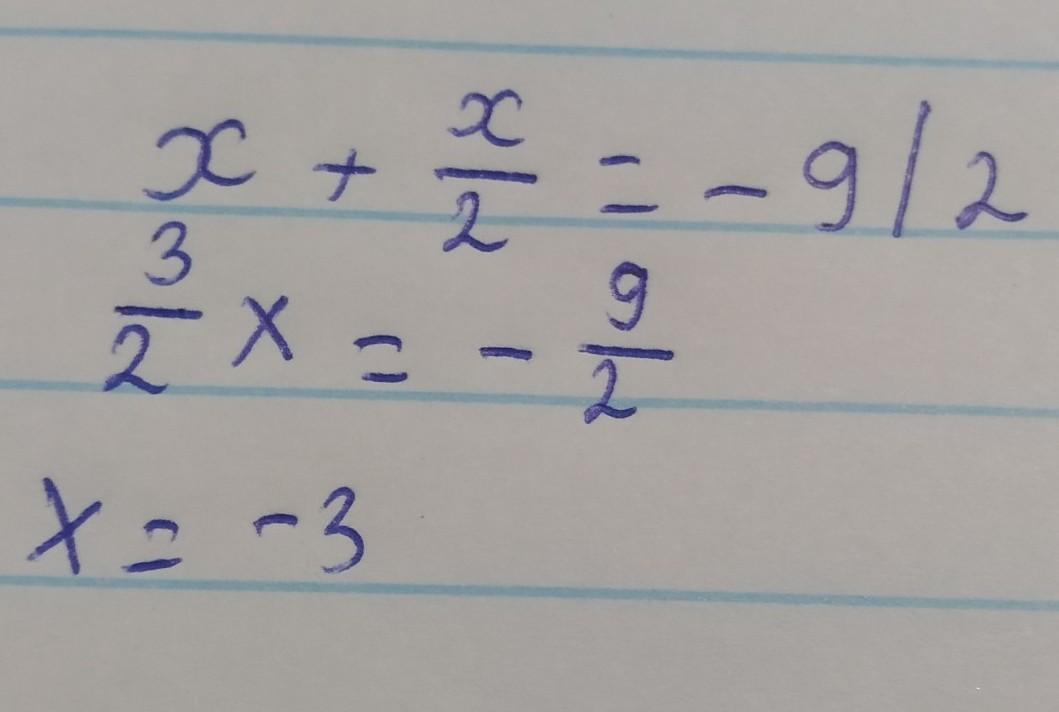 x + x/2 = - 9/2
3/2 x = - 9/2
x = -3